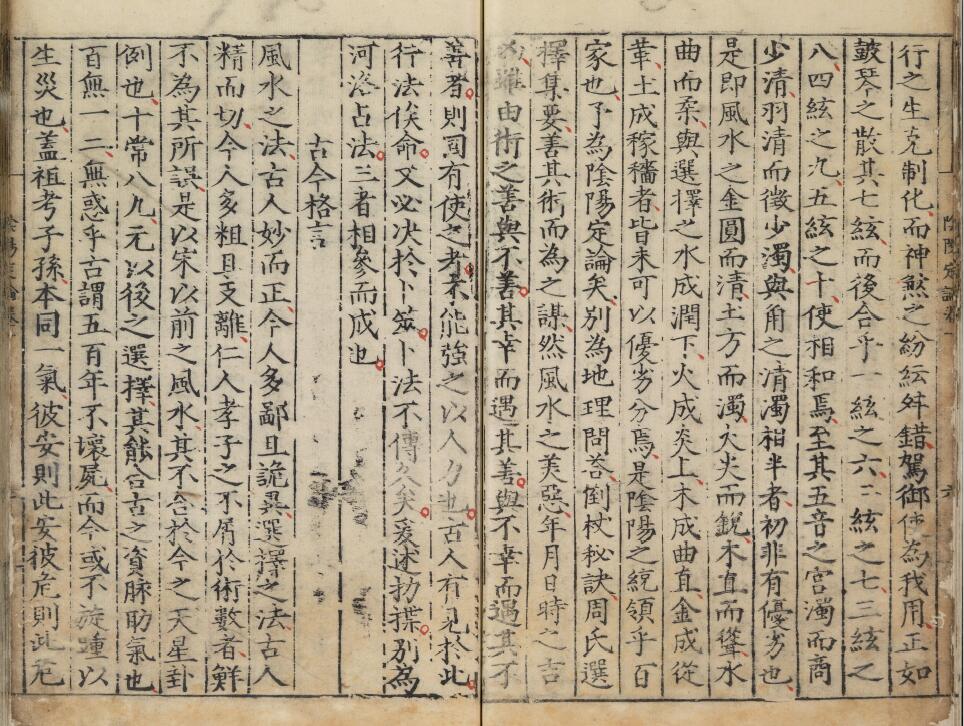 行之生克制化而神煞之紛紜舛錯駕御使為我用正如
鼓琴之散其七絃而後合乎一絃之六二絃之七三絃之
八四絃之九五絃之十使相和焉至其五音之宮濁而商
少清羽清而徵少濁與角之清濁相半者初非有優劣也
是即風水之金圓而清土方而濁火尖而銳木直而聳水
曲而柔與選擇之水成潤下火成炎上木成曲直金成從
革土成稼穡者皆未可以優劣分焉是陰陽之統領乎百
家也予為陰陽定論矣別為地理問荅倒杖秘訣周氏選
擇集要善其術而為之謀然風水之美惡年月日時之吉
雖由術之善與不善其幸而遇其善與不幸而遇其不
善者則固有使之者未能強之以人力也古人有見於此
行法俟命又必决於卜筮卜法不傳久矣爰述揲別為
河洛占法三者相參而成也
古今格言
風水之法古人妙而正今人多鄙且詭異選擇之法古人
精而切今人多粗且支離仁人孝子之不屑於術數者鮮
不為其所誤是以宋以前之風水其不合於今之天星卦
例也十常八九元以後之選擇其能合古之資脉助氣也
百無一二無惑乎古謂五百年不壞屍而今或不旋踵以
生災也蓋祖考子孫本同一氣彼安則此安彼危則此危
陰陽定論卷一
六